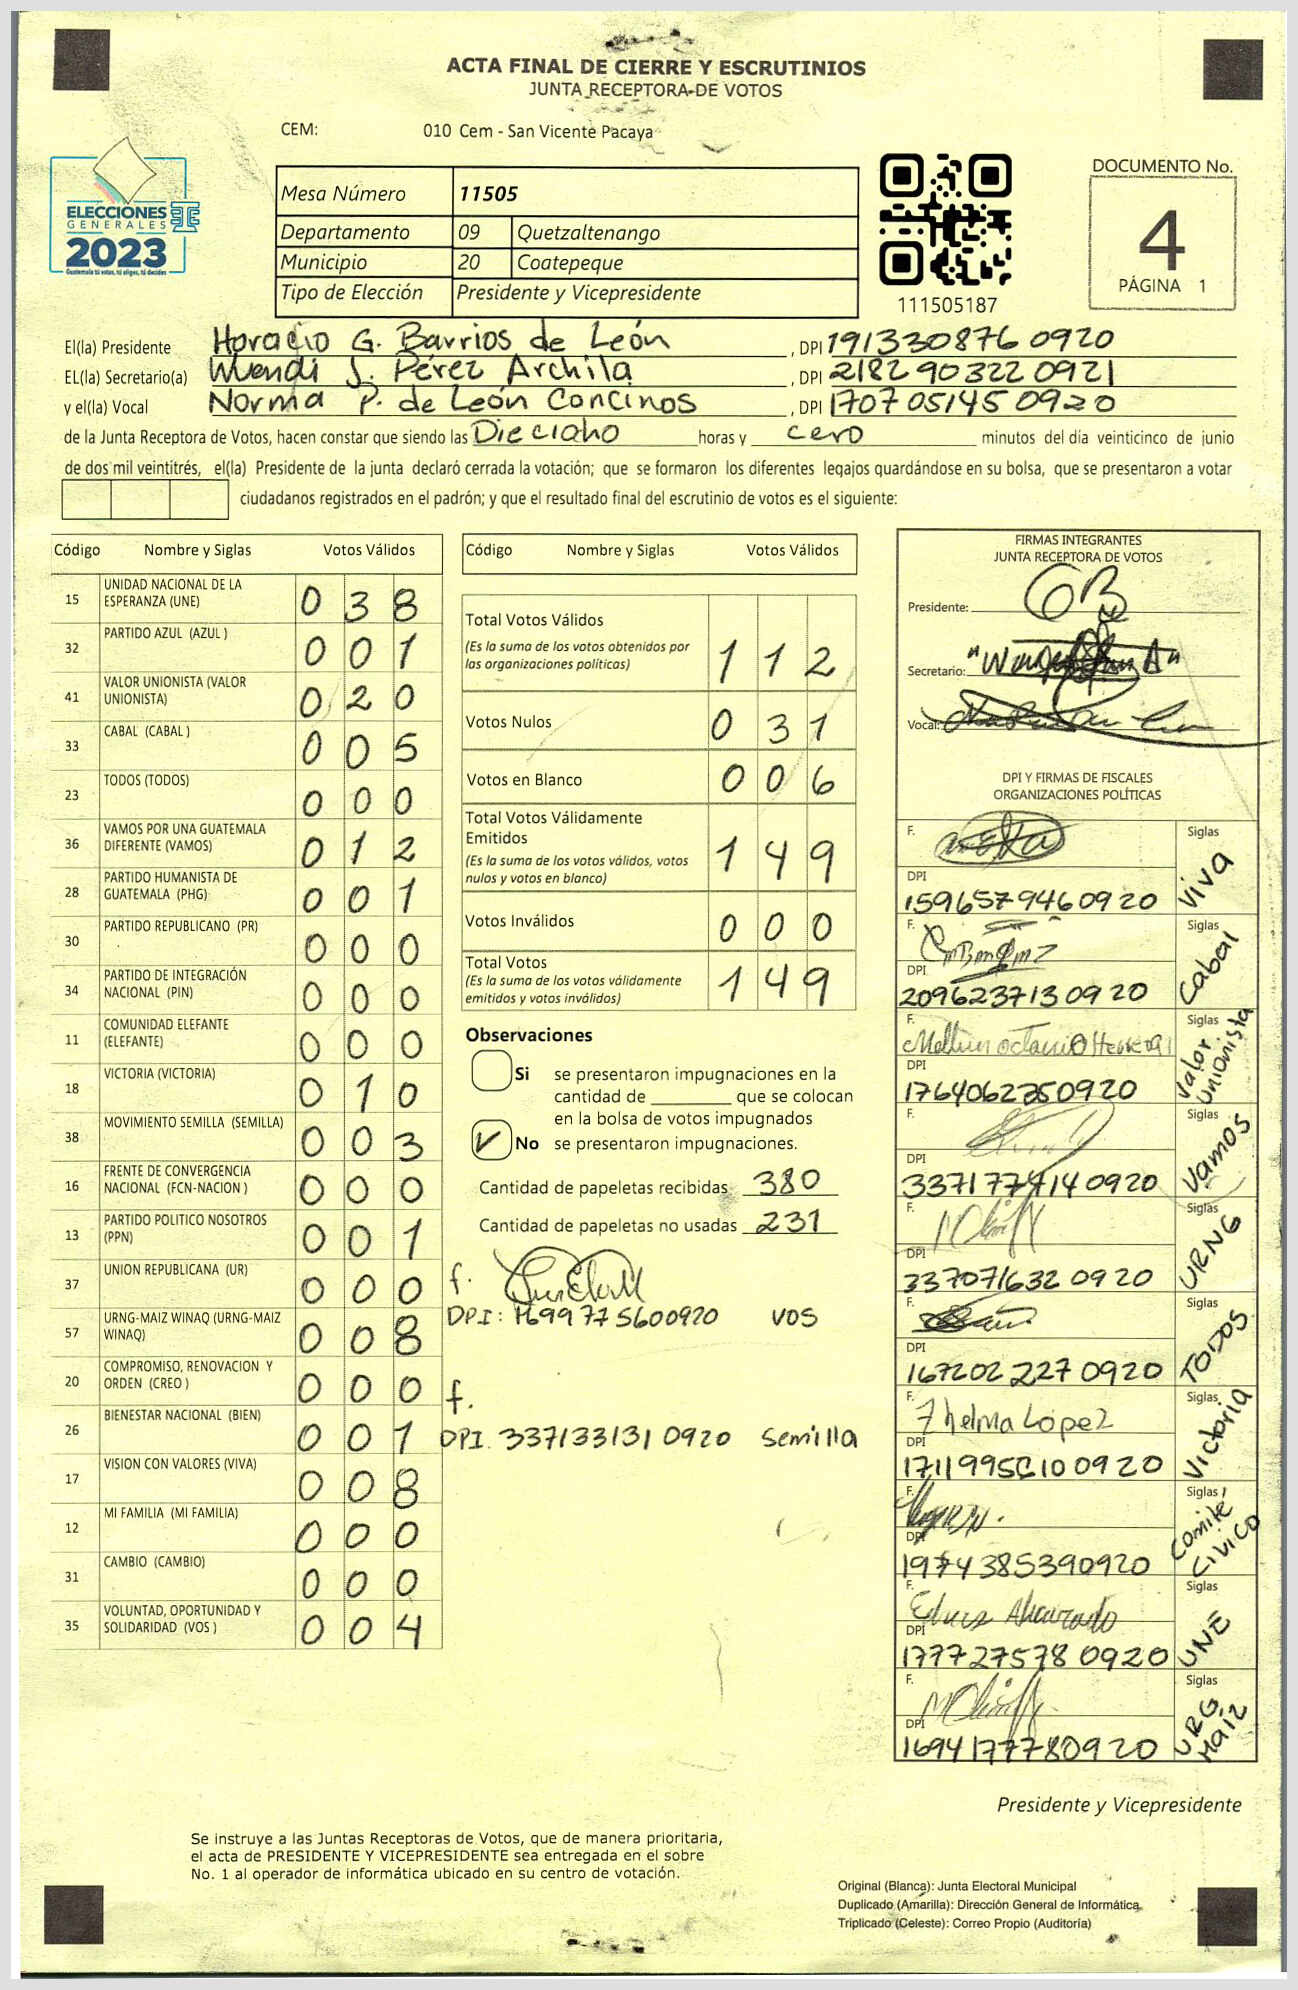 ACTA FINAL DE CIERRE Y ESCRUTINIOS
JUNTA RECEPTORA DE VOTOS
CEM: 010 Cem - San Vicente Pacaya
ELECCIONES
GENERALES
2023
Guatemala tú votas, tú eliges, tú decides
Mesa Número 11505
Departamento 09 Quetzaltenango
Municipio 20 Coatepeque
Tipo de Elección Presidente y Vicepresidente
111505187
DOCUMENTO No.
4
PÁGINA 1
El(la) Presidente Horacio G. Barrios de León, DPI 191330876 0920
EL(la) Secretario(a) Wuendi J. Pérez Archila, DPI 2182 90322 0921
y el(la) Vocal Norma P. de León Concinos, DPI 170705145 0920
de la Junta Receptora de Votos, hacen constar que siendo las Dieciaho horas y cero minutos del día veinticinco de junio
de dos mil veintitrés, el(la) Presidente de la junta declaró cerrada la votación; que se formaron los diferentes legajos quardándose en su bolsa, que se presentaron a votar
ciudadanos registrados en el padrón; y que el resultado final del escrutinio de votos es el siguiente:
Código Nombre y Siglas Votos Válidos
15 UNIDAD NACIONAL DE LA
ESPERANZA (UNE) 0 3 8
32 PARTIDO AZUL (AZUL ) 0 0 1
41 VALOR UNIONISTA (VALOR
UNIONISTA) 0 2 0
33 CABAL (CABAL ) 0 0 5
23 TODOS (TODOS) 0 0 0
36 VAMOS POR UNA GUATEMALA
DIFERENTE (VAMOS) 0 1 2
28 PARTIDO HUMANISTA DE
GUATEMALA (PHG) 0 0 1
30 PARTIDO REPUBLICANO (PR) 0 0 0
34 PARTIDO DE INTEGRACIÓN
NACIONAL (PIN) 0 0 0
11 COMUNIDAD ELEFANTE
(ELEFANTE) 0 0 0
18 VICTORIA (VICTORIA) 0 1 0
38 MOVIMIENTO SEMILLA (SEMILLA) 0 0 3
16 FRENTE DE CONVERGENCIA
NACIONAL (FCN-NACION ) 0 0 0
13 PARTIDO POLITICO NOSOTROS
(PPN) 0 0 1
37 UNION REPUBLICANA (UR) 0 0 0
57 URNG-MAIZ WINAQ (URNG-MAIZ
WINAQ) 0 0 8
20 COMPROMISO, RENOVACION Y
ORDEN (CREO ) 0 0 0
26 BIENESTAR NACIONAL (BIEN) 0 0 1
17 VISION CON VALORES (VIVA) 0 0 8
12 MI FAMILIA (MI FAMILIA) 0 0 0
31 CAMBIO (CAMBIO) 0 0 0
35 VOLUNTAD, OPORTUNIDAD Y
SOLIDARIDAD (VOS ) 0 0 4
Código Nombre y Siglas Votos Válidos
Total Votos Válidos
(Es la suma de los votos obtenidos por
las organizaciones políticas) 1 1 2
Votos Nulos 0 3 1
Votos en Blanco 0 0 6
Total Votos Válidamente
Emitidos
(Es la suma de los votos válidos, votos
nulos y votos en blanco) 1 4 9
Votos Inválidos 0 0 0
Total Votos
(Es la suma de los votos válidamente
emitidos y votos inválidos) 1 4 9
Observaciones
Si se presentaron impugnaciones en la
cantidad de ________ que se colocan
en la bolsa de votos impugnados
No se presentaron impugnaciones.
Cantidad de papeletas recibidas 380
Cantidad de papeletas no usadas 231
f.
DPI: 1699775600920 VOS
f.
DPI. 337133131 0920 Semilla
FIRMAS INTEGRANTES
JUNTA RECEPTORA DE VOTOS
Presidente:
Secretario:
Vocal:
DPI Y FIRMAS DE FISCALES
ORGANIZACIONES POLÍTICAS
F. Siglas
DPI
159657946 0920 Viva
F. Siglas
DPI
209623713 0920 Cabal
F. Siglas
DPI
1764062250920 Valor Unionista
F. Siglas
DPI
337177414 0920 Vamos
F. Siglas
DPI
337071632 0920 URNG
F. Siglas
DPI
167202227 0920 TODOS
F. Thelma López Siglas
DPI
0920 Victoria
F. Siglas
DPI
1974385390920 Comité Civico
F. Alvarado Siglas
DPI
177727578 0920 UNE
F. Siglas
DPI
1694177780920 URG Maiz
Presidente y Vicepresidente
Se instruye a las Juntas Receptoras de Votos, que de manera prioritaria,
el acta de PRESIDENTE Y VICEPRESIDENTE sea entregada en el sobre
No. 1 al operador de informática ubicado en su centro de votación.
Original (Blanca): Junta Electoral Municipal
Duplicado (Amarilla): Dirección General de Informática
Triplicado (Celeste): Correo Propio (Auditoría)